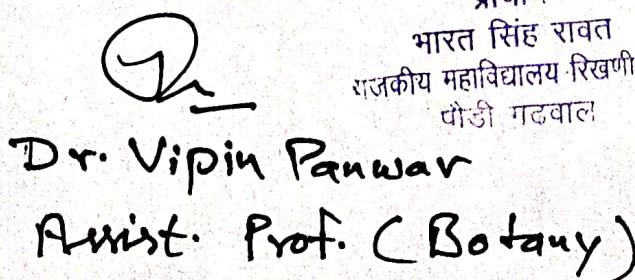 भारत सिंह रावत
राजकीय महाविद्यालय रिखणी
पौडी गढवाल
Dr. Vipin Panwar
Assist. Prof. (Botany)